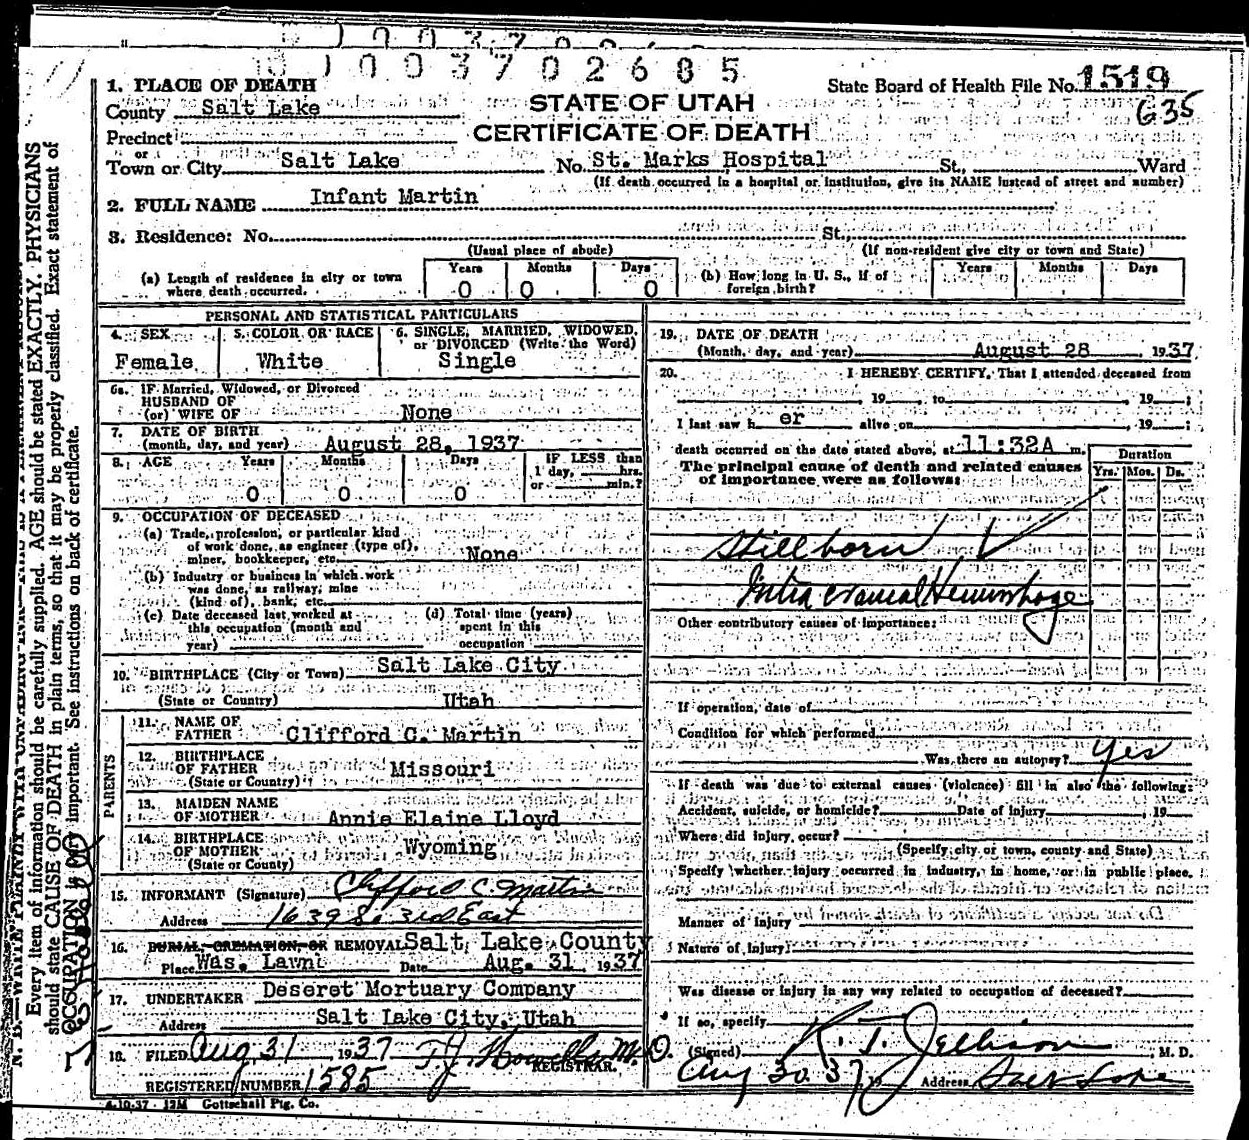 1003702685
1. PLACE OF DEATH
State Board of Health File No. 1519
County Salt Lake
STATE OF UTAH
635
Precinct
CERTIFICATE OF DEATH
or
Town or City Salt Lake No. St. Marks Hospital St., Ward
(If death occurred in a hospital or institution, give its NAME instead of street and number)
2. FULL NAME Infant Martin
3. Residence: No. St.,
(Usual place of abode) (If non-resident give city or town and State)
(a) Length of residence in city or town where death occurred. Years 0 Months 0 Days 0
(b) How long in U. S., if of foreign birth? Years Months Days
PERSONAL AND STATISTICAL PARTICULARS
4. SEX Female
5. COLOR OR RACE White
6. SINGLE, MARRIED, WIDOWED, or DIVORCED (Write the Word) Single
6a. IF Married, Widowed, or Divorced
HUSBAND OF
(or) WIFE OF None
7. DATE OF BIRTH
(month, day, and year) August 28, 1937
8. AGE Years 0 Months 0 Days 0
IF LESS than
1 day, hrs.
or min.?
9. OCCUPATION OF DECEASED
(a) Trade, profession, or particular kind
of work done, as engineer (type of),
miner, bookkeeper, etc. None
(b) Industry or business in which work
was done, as railway, mine
(kind of), bank, etc.
(c) Date deceased last worked at
this occupation (month and
year)
(d) Total time (years)
spent in this
occupation
10. BIRTHPLACE (City or Town) Salt Lake City
(State or Country) Utah
PARENTS
11. NAME OF
FATHER Clifford C. Martin
12. BIRTHPLACE
OF FATHER Missouri
(State or Country)
13. MAIDEN NAME
OF MOTHER Annie Elaine Lloyd
14. BIRTHPLACE
OF MOTHER Wyoming
(State or County)
15. INFORMANT (Signature) Clifford C. Martin
Address 1639 So 3rd East
16. BURIAL, CREMATION, OR REMOVAL Salt Lake County
Place Was. Lawn Date Aug. 31, 1937
17. UNDERTAKER Deseret Mortuary Company
Address Salt Lake City, Utah
18. FILED Aug 31, 1937 T J Howells M.D.
REGISTRAR.
REGISTERED NUMBER 1585
4-10-37 - 12M Gottschall Ptg. Co.
19. DATE OF DEATH
(Month, day, and year) August 28, 1937
20. I HEREBY CERTIFY, That I attended deceased from
, 19 , to , 19 ;
I last saw h er alive on , 19 ;
death occurred on the date stated above, at 11:32A m.
The principal cause of death and related causes
of importance were as follows:
Duration
Yrs. Mos. Ds.
Stillborn
Intra cranial Hemorrhage
Other contributory causes of importance:
If operation, date of
Condition for which performed
Was there an autopsy? Yes
If death was due to external causes (violence) fill in also the following:
Accident, suicide, or homicide? Date of injury , 19
Where did injury occur?
(Specify city of town, county and State)
Specify whether injury occurred in industry, in home, or in public place.
Manner of injury
Nature of injury
Was disease or injury in any way related to occupation of deceased?
If so, specify
(Signed) R. T. Jellison M. D.
Aug 30 37 19 Address Salt Lake
Every item of information should be carefully supplied. AGE should be stated EXACTLY. PHYSICIANS
should state CAUSE OF DEATH in plain terms, so that it may be properly classified. Exact statement of
OCCUPATION is very important. See instructions on back of certificate.